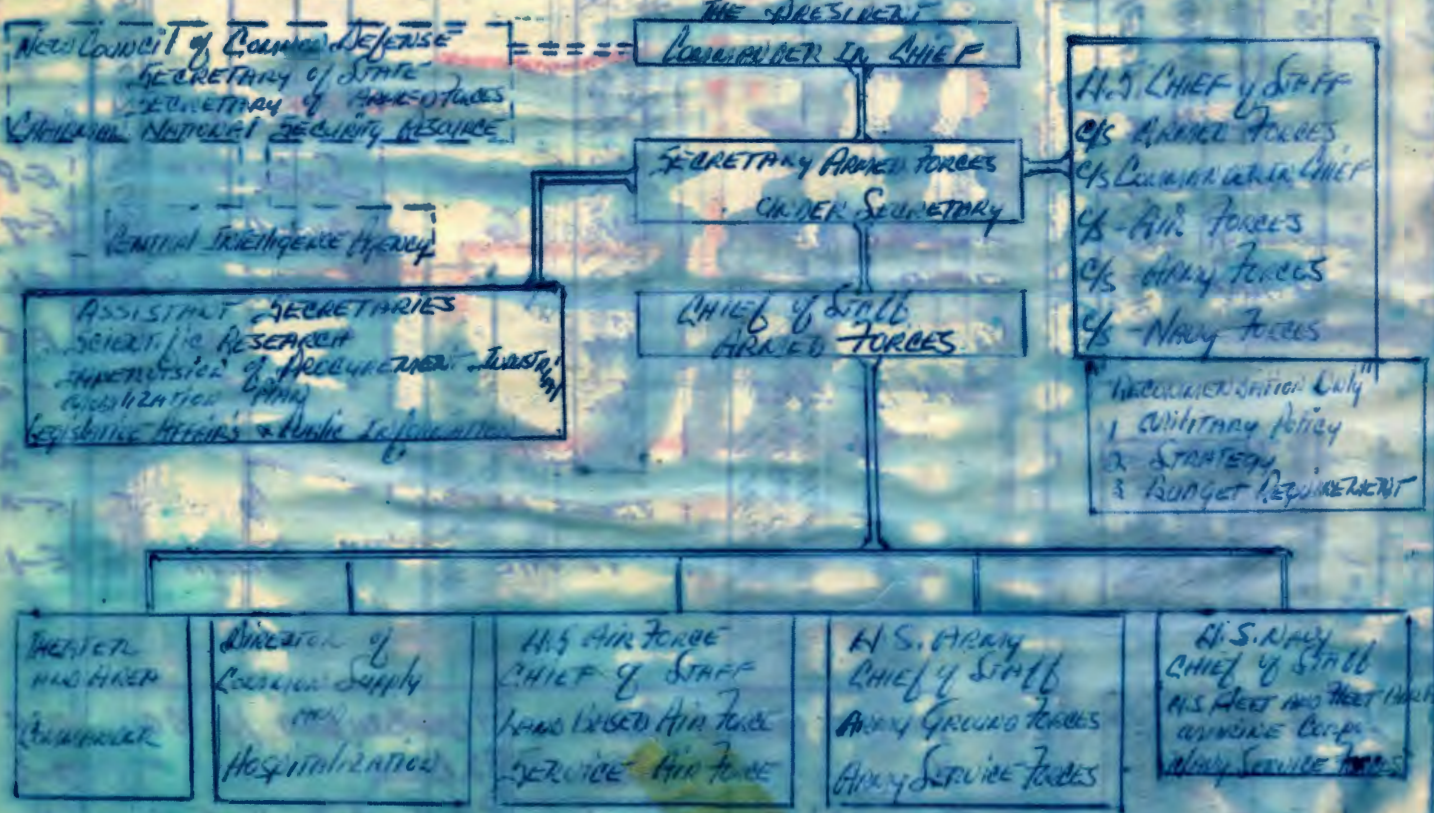 THE PRESIDENT
COMMANDER IN CHIEF
NEW COUNCIL of COMMON DEFENSE
SECRETARY of STATE
SECRETARY of ARMED FORCES
CHAIRMAN NATIONAL SECURITY RESOURCE
CENTRAL INTELLIGENCE AGENCY
SECRETARY ARMED FORCES
UNDER SECRETARY
U.S. CHIEF of STAFF
C/S ARMED FORCES
C/S COMMANDER IN CHIEF
C/S - AIR FORCES
C/S - ARMY FORCES
C/S - NAVY FORCES
"RECOMMENDATION ONLY"
1 MILITARY POLICY
2 STRATEGY
3 BUDGET REQUIREMENT
ASSISTANT SECRETARIES
SCIENTIFIC RESEARCH
SUPERVISION of PROCUREMENT INDUSTRIAL
MOBILIZATION PLAN
LEGISLATIVE AFFAIRS & PUBLIC INFORMATION
CHIEF of STAFF
ARMED FORCES
THEATER
AND AREA
COMMANDER
DIRECTOR of
COMMON SUPPLY
AND
HOSPITALIZATION
U.S AIR FORCE
CHIEF of STAFF
LAND BASED AIR FORCE
SERVICE AIR FORCE
U.S. ARMY
CHIEF of STAFF
ARMY GROUND FORCES
ARMY SERVICE FORCES
U.S. NAVY
CHIEF of STAFF
U.S. FLEET AND FLEET
MARINE CORPS
NAVY SERVICE FORCES